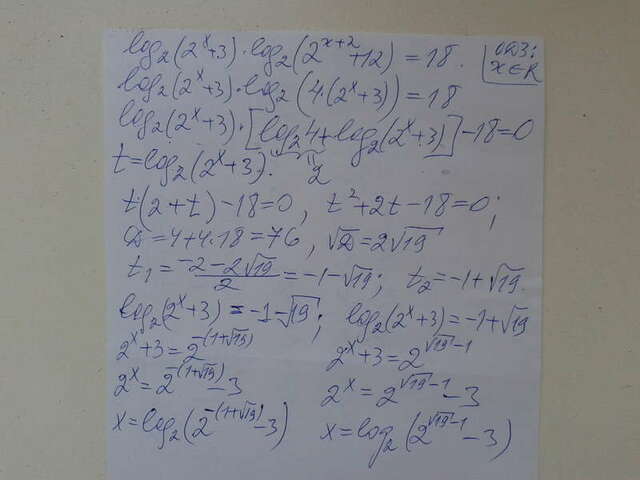 log₂(2ˣ+3)·log₂(2ˣ⁺²+12) = 18. ОДЗ:
x∈R
log₂(2ˣ+3)·log₂(4·(2ˣ+3)) = 18
log₂(2ˣ+3)·[log₂4+log₂(2ˣ+3)]-18=0
t=log₂(2ˣ+3). 2
t(2+t)-18=0, t²+2t-18=0;
D=4+4·18=76, √D=2√19
t₁=(-2-2√19)/2=-1-√19; t₂=-1+√19.
log₂(2ˣ+3)=-1-√19; log₂(2ˣ+3)=-1+√19
2ˣ+3=2^(-(1+√19)) 2ˣ+3=2^(√19-1)
2ˣ=2^(-(1+√19))-3 2ˣ=2^(√19-1)-3
x=log₂(2^(-(1+√19))-3) x=log₂(2^(√19-1)-3)